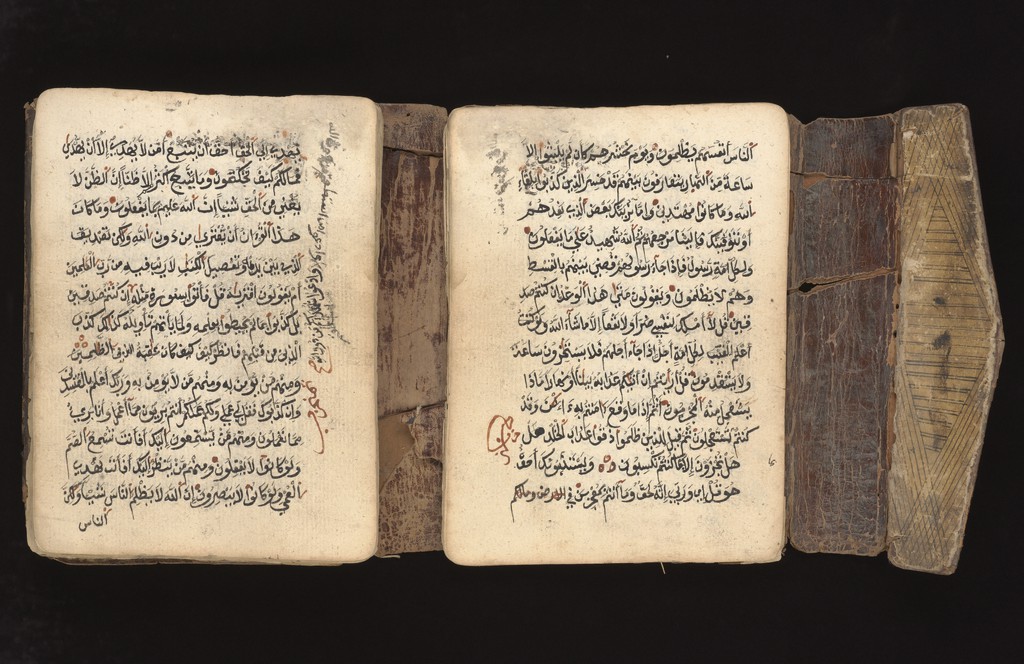 يهدي إلى الحق أحق أن يتبع أمن لا يهدي إلا أن يهدى
فمالكم كيف تحكمون وما يتبع أكثرهم إلا ظنا إن الظن لا
يغني من الحق شيئا إن الله عليم بما يفعلون وما كان
هذا القرآن أن يفترى من دون الله ولكن تصديق
الذي بين يديه وتفصيل الكتب لا ريب فيه من رب العلمين
أم يقولون افتريه قل فأتوا بسورة مثله إن كنتم صدقين
بل كذبوا بما لم يحيطوا بعلمه ولما يأتهم تأويله كذلك كذب
الذين من قبلهم فانظر كيف كان عقبة الظلمين
ومنهم من يؤمن به ومنهم من لا يؤمن به وربك أعلم بالمفسدين
وإن كذبوك فقل لي عملي ولكم عملكم أنتم بريئون مما أعمل وأنا بريء
مما تعملون ومنهم من يستمعون إليك أفأنت تسمع الصم
ولو كانوا لا يعقلون ومنهم من ينظر إليك أفأنت تهدي
العمي ولو كانوا لا يبصرون إن الله لا يظلم الناس شيئا ولكن
الناس
الناس أنفسهم يظلمون ويوم يحشرهم كأن لم يلبثوا إلا
ساعة من النهار يتعارفون بينهم قد خسر الذين كذبوا بلقاء
الله وما كانوا مهتدين وإما نرينك بعض الذي نعدهم
أو نتوفينك فإلينا مرجعهم ثم الله شهيد على ما يفعلون
ولكل أمة رسول فإذا جاء رسولهم قضي بينهم بالقسط
وهم لا يظلمون ويقولون متى هذا الوعد إن كنتم صد
قين قل لا أملك لنفسي ضرا ولا نفعا إلا ما شاء الله
لكل أمة أجل إذا جاء أجلهم فلا يستئخرون ساعة
ولا يستقدمون قل أريتم إن أتيكم عذابه بيتا أو نهارا ماذا
يستعجل منه المجرمون أثم إذا ما وقع آمنتم به ءالئن وقد
كنتم به تستعجلون ثم قيل للذين ظلموا ذوقوا عذاب الخلد هل
هل تجزون إلا بما كنتم تكسبون ويستنبئونك أحق
هو قل إي وربي إنه لحق وما أنتم بمعجزين